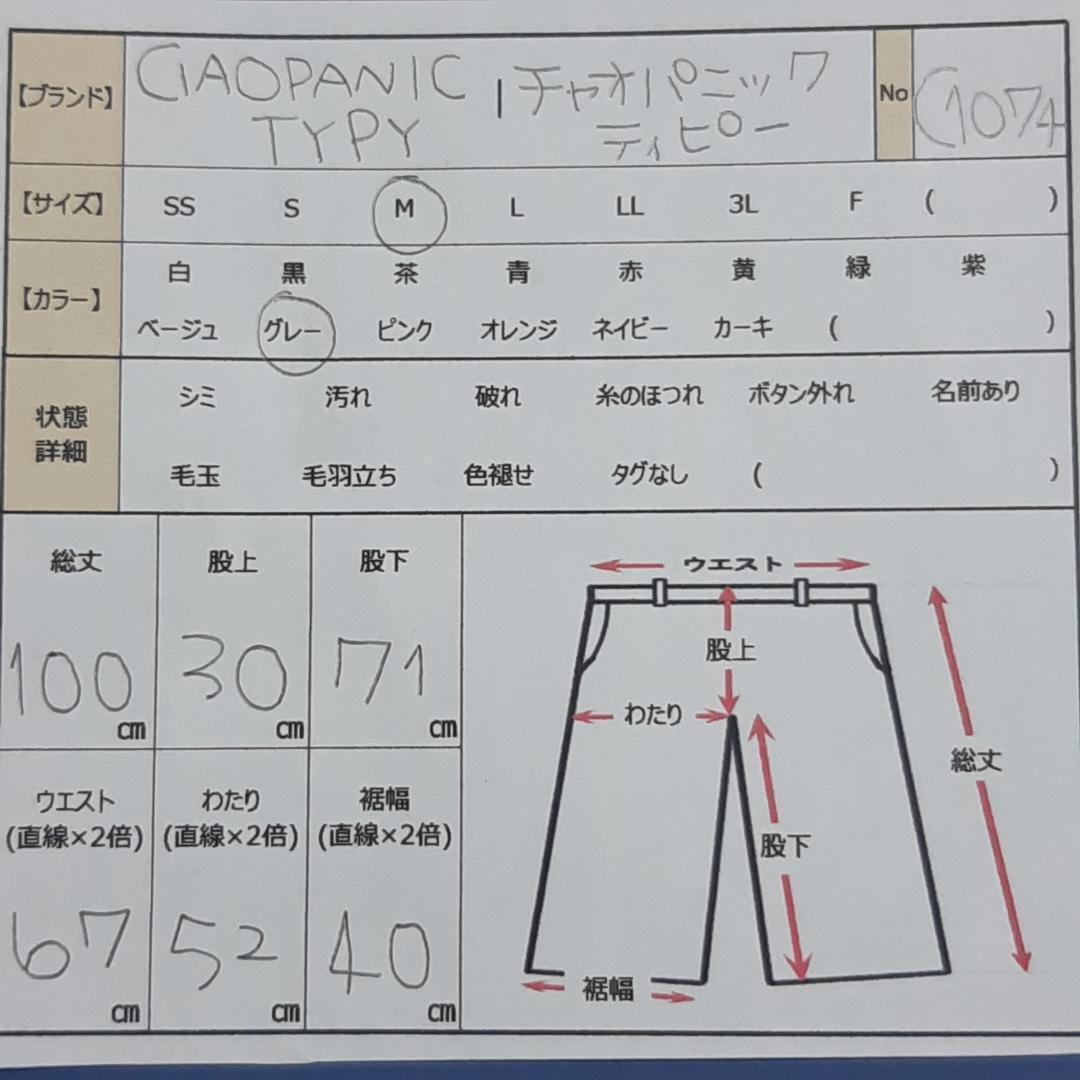 【ブランド】 CIAOPANIC TYPY | チャオパニック ティピー No C1074
【サイズ】 SS S M L LL 3L F ( )
【カラー】 白 黒 茶 青 赤 黄 緑 紫
ベージュ グレー ピンク オレンジ ネイビー カーキ ( )
状態
詳細
シミ 汚れ 破れ 糸のほつれ ボタン外れ 名前あり
毛玉 毛羽立ち 色褪せ タグなし ( )
総丈 股上 股下
100 cm 30 cm 71 cm
ウエスト わたり 裾幅
(直線×2倍) (直線×2倍) (直線×2倍)
67 cm 52 cm 40 cm
ウエスト
股上
わたり
総丈
股下
裾幅